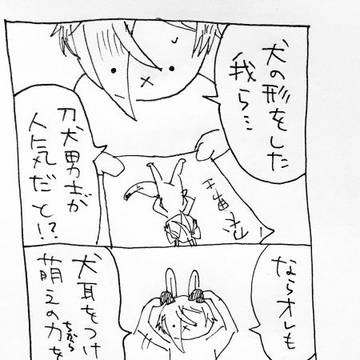 犬の形をした
我ら…
刀犬男士が
人気だと!?
ならオレも
犬耳をつけ
萌えの力を
ちから